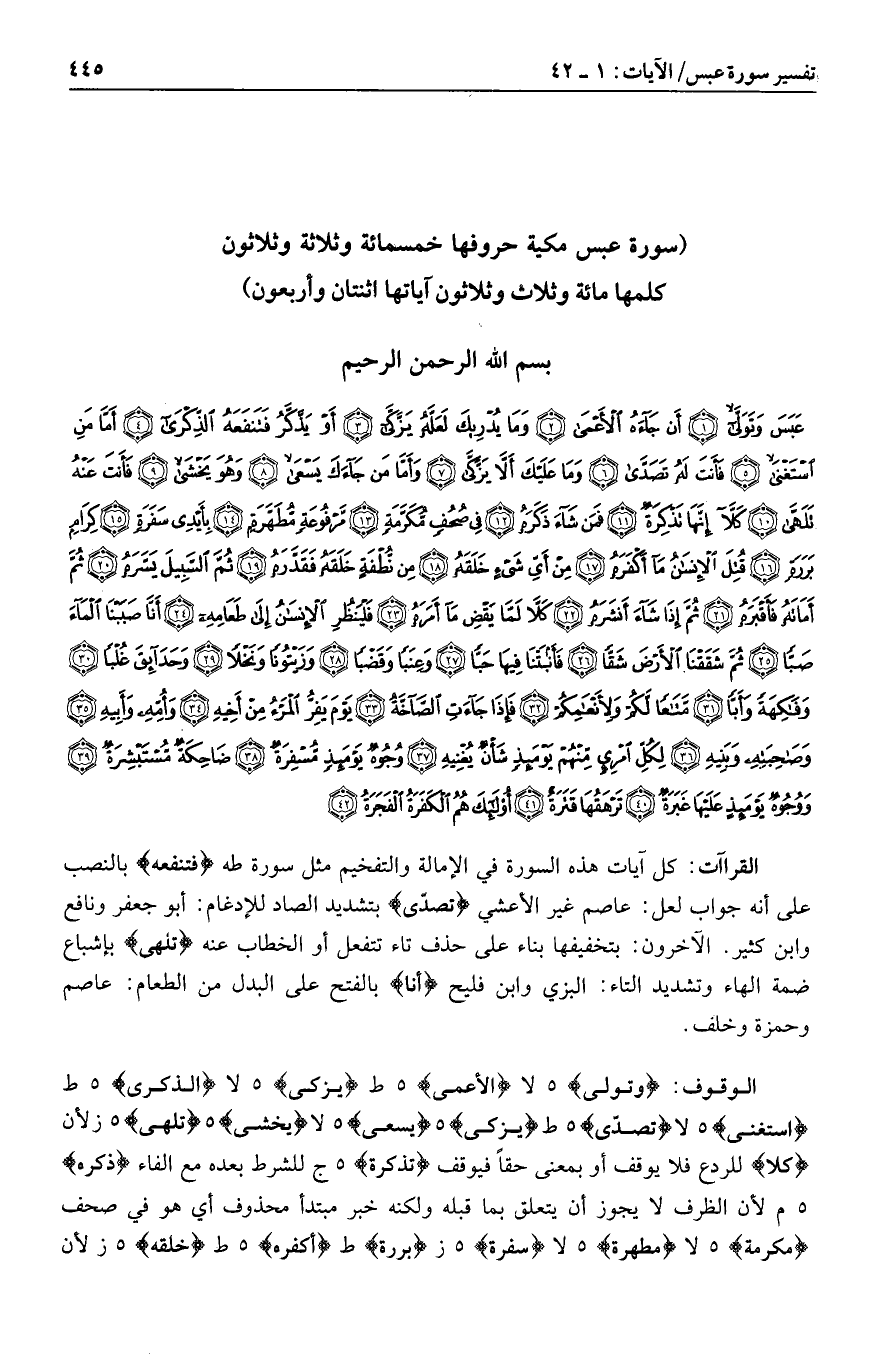 تفسير سورة عبس/ الآيات: ١ ـ ٤٢ ٤٤٥
(سورة عبس مكية حروفها خمسمائة وثلاثة وثلاثون
كلمها مائة وثلاث وثلاثون آياتها اثنتان وأربعون)
بسم الله الرحمن الرحيم
عَبَسَ وَتَوَلَّىٰٓ ﴿١﴾ أَن جَآءَهُ ٱلْأَعْمَىٰ ﴿٢﴾ وَمَا يُدْرِيكَ لَعَلَّهُۥ يَزَّكَّىٰٓ ﴿٣﴾ أَوْ يَذَّكَّرُ فَتَنفَعَهُ ٱلذِّكْرَىٰٓ ﴿٤﴾ أَمَّا مَنِ
ٱسْتَغْنَىٰ ﴿٥﴾ فَأَنتَ لَهُۥ تَصَدَّىٰ ﴿٦﴾ وَمَا عَلَيْكَ أَلَّا يَزَّكَّىٰ ﴿٧﴾ وَأَمَّا مَن جَآءَكَ يَسْعَىٰ ﴿٨﴾ وَهُوَ يَخْشَىٰ ﴿٩﴾ فَأَنتَ عَنْهُ
تَلَهَّىٰ ﴿١٠﴾ كَلَّآ إِنَّهَا تَذْكِرَةٌ ﴿١١﴾ فَمَن شَآءَ ذَكَرَهُۥ ﴿١٢﴾ فِى صُحُفٍ مُّكَرَّمَةٍ ﴿١٣﴾ مَّرْفُوعَةٍ مُّطَهَّرَةٍۭ ﴿١٤﴾ بِأَيْدِى سَفَرَةٍ ﴿١٥﴾ كِرَامٍۭ
بَرَرَةٍ ﴿١٦﴾ قُتِلَ ٱلْإِنسَٰنُ مَآ أَكْفَرَهُۥ ﴿١٧﴾ مِنْ أَىِّ شَىْءٍ خَلَقَهُۥ ﴿١٨﴾ مِن نُّطْفَةٍ خَلَقَهُۥ فَقَدَّرَهُۥ ﴿١٩﴾ ثُمَّ ٱلسَّبِيلَ يَسَّرَهُۥ ﴿٢٠﴾ ثُمَّ
أَمَاتَهُۥ فَأَقْبَرَهُۥ ﴿٢١﴾ ثُمَّ إِذَا شَآءَ أَنشَرَهُۥ ﴿٢٢﴾ كَلَّا لَمَّا يَقْضِ مَآ أَمَرَهُۥ ﴿٢٣﴾ فَلْيَنظُرِ ٱلْإِنسَٰنُ إِلَىٰ طَعَامِهِۦٓ ﴿٢٤﴾ أَنَّا صَبَبْنَا ٱلْمَآءَ
صَبًّا ﴿٢٥﴾ ثُمَّ شَقَقْنَا ٱلْأَرْضَ شَقًّا ﴿٢٦﴾ فَأَنۢبَتْنَا فِيهَا حَبًّا ﴿٢٧﴾ وَعِنَبًا وَقَضْبًا ﴿٢٨﴾ وَزَيْتُونًا وَنَخْلًا ﴿٢٩﴾ وَحَدَآئِقَ غُلْبًا ﴿٣٠﴾
وَفَٰكِهَةً وَأَبًّا ﴿٣١﴾ مَّتَٰعًا لَّكُمْ وَلِأَنْعَٰمِكُمْ ﴿٣٢﴾ فَإِذَا جَآءَتِ ٱلصَّآخَّةُ ﴿٣٣﴾ يَوْمَ يَفِرُّ ٱلْمَرْءُ مِنْ أَخِيهِ ﴿٣٤﴾ وَأُمِّهِۦ وَأَبِيهِ ﴿٣٥﴾
وَصَٰحِبَتِهِۦ وَبَنِيهِ ﴿٣٦﴾ لِكُلِّ ٱمْرِئٍ مِّنْهُمْ يَوْمَئِذٍ شَأْنٌ يُغْنِيهِ ﴿٣٧﴾ وُجُوهٌ يَوْمَئِذٍ مُّسْفِرَةٌ ﴿٣٨﴾ ضَاحِكَةٌ مُّسْتَبْشِرَةٌ ﴿٣٩﴾
وَوُجُوهٌ يَوْمَئِذٍ عَلَيْهَا غَبَرَةٌ ﴿٤٠﴾ تَرْهَقُهَا قَتَرَةٌ ﴿٤١﴾ أُو۟لَٰٓئِكَ هُمُ ٱلْكَفَرَةُ ٱلْفَجَرَةُ ﴿٤٢﴾
القراآت: كل آيات هذه السورة في الإمالة والتفخيم مثل سورة طه ﴿فتنفعه﴾ بالنصب
على أنه جواب لعل: عاصم غير الأعشي ﴿تصدّى﴾ بتشديد الصاد للإدغام: أبو جعفر ونافع
وابن كثير. الآخرون: بتخفيفها بناء على حذف تاء تتفعل أو الخطاب عنه ﴿تلهى﴾ بإشباع
ضمة الهاء وتشديد التاء: البزي وابن فليح ﴿أنا﴾ بالفتح على البدل من الطعام: عاصم
وحمزة وخلف.
الوقوف: ﴿وتولى﴾ ٥ لا ﴿الأعمى﴾ ٥ ط ﴿يزكى﴾ ٥ لا ﴿الذكرى﴾ ٥ ط
﴿استغنى﴾ ٥ لا ﴿تصدّى﴾ ٥ ط ﴿يزكى﴾ ٥ ﴿يسعى﴾ ٥ لا ﴿يخشى﴾ ٥ ﴿تلهى﴾ ٥ ز لأن
﴿كلا﴾ للردع فلا يوقف أو بمعنى حقاً فيوقف ﴿تذكرة﴾ ٥ ج للشرط بعده مع الفاء ﴿ذكره﴾
٥ م لأن الظرف لا يجوز أن يتعلق بما قبله ولكنه خبر مبتدأ محذوف أي هو في صحف
﴿مكرمة﴾ ٥ لا ﴿مطهرة﴾ ٥ لا ﴿سفرة﴾ ٥ ز ﴿بررة﴾ ط ﴿أكفره﴾ ٥ ط ﴿خلقه﴾ ٥ ز لأن